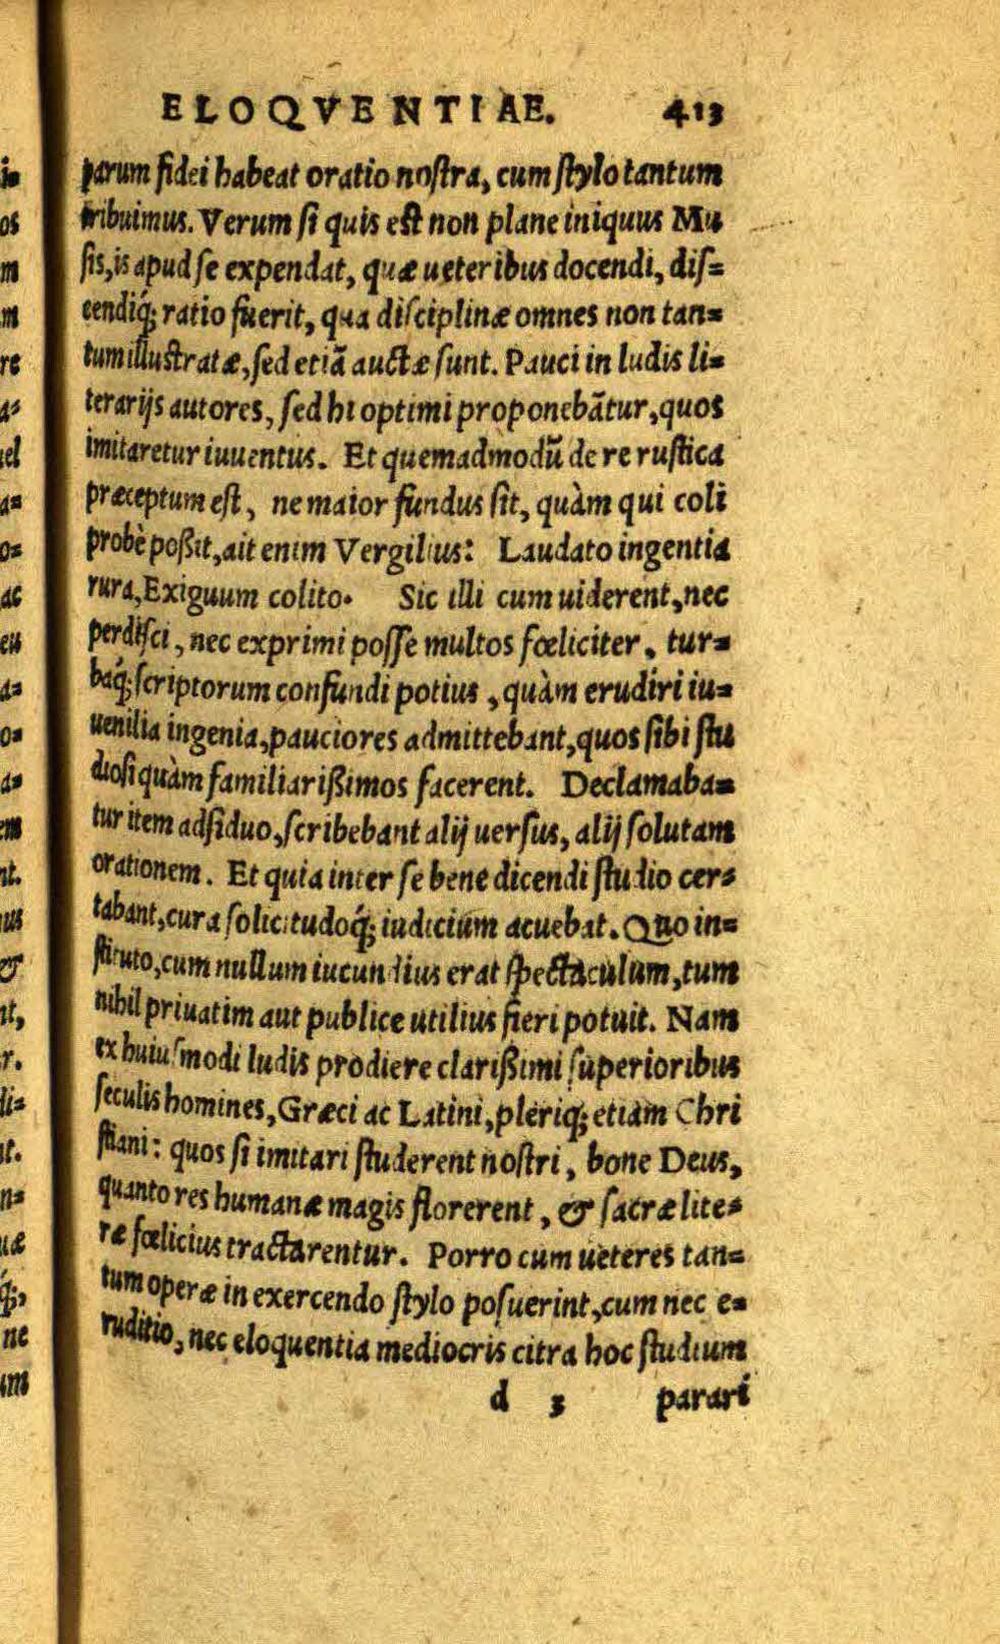 ELOQVENTIAE. 413
parum fidei habeat oratio nostra, cum stylo tantum
tribuimus. Verum si quis est non plane iniquus Mu
sis, is apud se expendat, quæ ueteribus docendi, dis=
cendiq́; ratio fuerit, qua disciplinæ omnes non tan=
tum illustratæ, sed etiã auctæ sunt. Pauci in ludis li=
terarijs autores, sed hi optimi proponebãtur, quos
imitaretur iuuentus. Et quemadmodũ de re rustica
præceptum est, ne maior fundus sit, quàm qui coli
probè poßit, ait enim Vergilius: Laudato ingentia
rura, Exiguum colito. Sic illi cum uiderent, nec
perdisci, nec exprimi posse multos fœliciter, tur=
baq́; scriptorum confundi potius, quàm erudiri iu=
uenilia ingenia, pauciores admittebant, quos sibi stu
diosi quàm familiarißimos facerent. Declamaba=
tur item adsiduo, scribebant alij uersus, alij solutam
orationem. Et quia inter se bene dicendi studio cer=
tabant, cura solicitudoq́; iudicium acuebat. Quo in=
stituto, cum nullum iucundius erat spectaculum, tum
nihil priuatim aut publice utilius fieri potuit. Nam
ex huiusmodi ludis prodiere clarißimi superioribus
seculis homines, Græci ac Latini, pleriq; etiam Chri
stiani: quos si imitari studerent nostri, bone Deus,
quanto res humanæ magis florerent, & sacræ lite=
ræ fœlicius tractarentur. Porro cum ueteres tan=
tum operæ in exercendo stylo posuerint, cum nec e=
ruditio, nec eloquentia mediocris citra hoc studium
d 3 parari